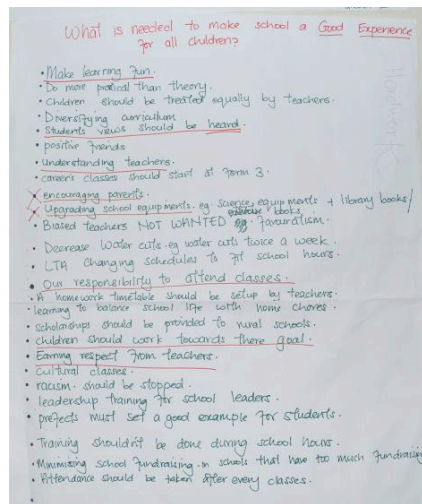 What is needed to make school a Good Experience
for all children?
• Make learning fun.
• Do more pratical than theory.
• Children should be treated equally by teachers.
• Diversifying curriculum
• Students views should be heard.
• positive friends
• Understanding teachers.
• career's classes should start at Form 3.
• encouraging parents.
• Upgrading school equipments. eg. science equipments + library books/
books.
• Biased teachers NOT WANTED eg. favouratism.
• Decrease water cuts. eg water cuts twice a week.
• LTA changing schedules to fit school hours.
• Our responsibility to attend classes.
• A homework timetable should be setup by teachers.
• learning to balance school life with home chores.
• scholarships should be provided to rural schools.
• children should work towards there goal.
• Earning respect from teachers.
• Cultural classes.
• racism. should be stopped.
• leadership training for school leaders.
• prefects must set a good example for students.
• Training shouldn't be done during school hours.
• Minimizing school fundraising in schools that have too much fundraising
• Attendance should be taken after every classes.